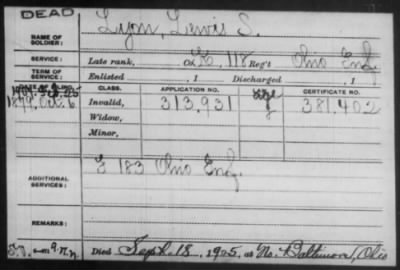 DEAD
NAME OF SOLDIER: Lyon, Lewis S.
SERVICE: Late rank, Co. K, 118 Reg't Ohio Inf.
TERM OF SERVICE: Enlisted , 1 Discharged , 1
CLASS. APPLICATION NO. CERTIFICATE NO.
1879, Dec. 6 Invalid, 313,931 381,402
Widow,
Minor,
ADDITIONAL SERVICES: E 183 Ohio Inf.
REMARKS:
Died Sept. 18, 1925, at No. Baltimore, Ohio